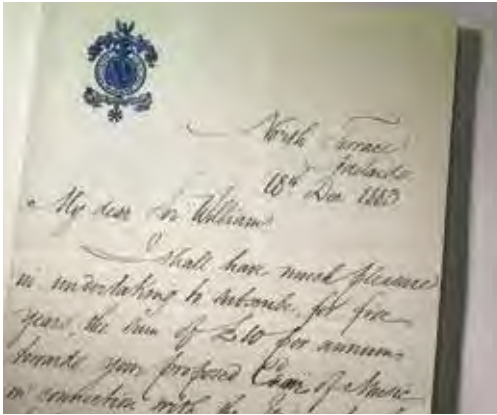 North Terrace
Adelaide
18th Dec 1883
My dear Sir William
I shall have much pleasure
in undertaking to subscribe, for five
years, the sum of £10 per annum
towards your proposed Chair of Music
in connection with the